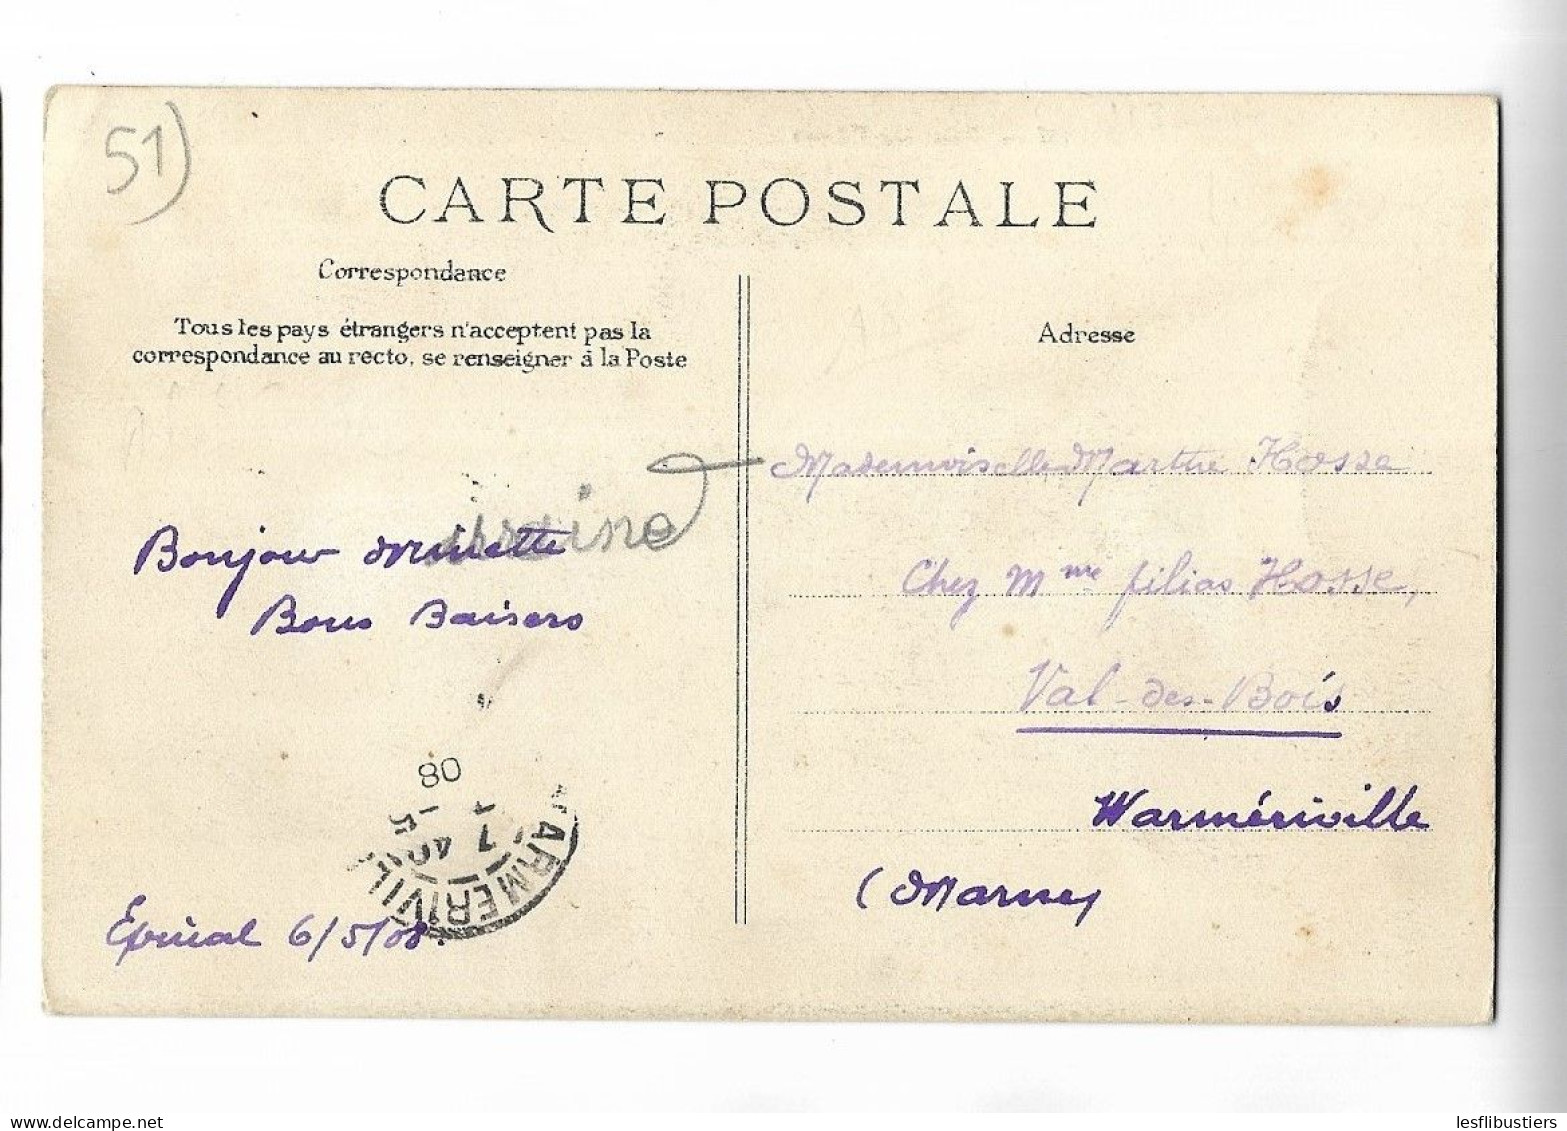 51)
CARTE POSTALE
Correspondance
Tous les pays étrangers n'acceptent pas la
correspondance au recto, se renseigner à la Poste
Bonjour Minette
Bons Baisers
08
7 - 5
7 40
WARMERIVILLE
Épinal 6/5/08
Adresse
Mademoiselle Marthe Hosse
Chez Mme filias Hosse,
Val-des-Bois
Warmériville
(Marne)
lesflibustiers